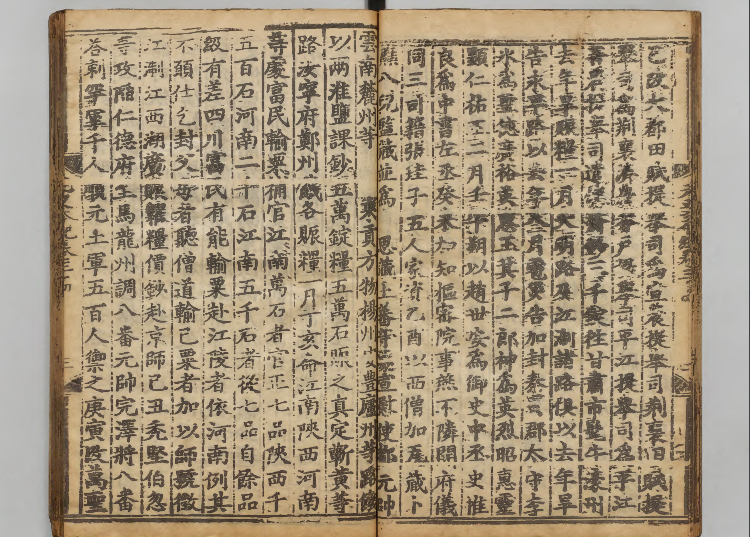 己改大都田賦提舉司爲宣農提舉司荆襄田賦提
舉司爲荆襄濟農香戶提舉司平江提舉司爲平江
善農提舉司遣
去年旱賑糧一月大明路及江淛諸路俱以去年旱
告永平路以去年八月雹災告加封秦蜀郡太守李
冰爲聖德廣裕英惠王其子二郎神爲英烈昭惠靈
顯仁祐王二月壬午朔以趙世安爲御史中丞史惟
良爲中書左丞癸未加知樞密院事燕不隣開府儀
同三司籍張珪子五人家資乙酉以西僧加瓦藏卜
八兒監藏並爲烏思藏土番等處宣慰使都元帥
雲南麓州等 來貢方物揚州 豐廬州等路饑
以兩淮鹽課鈔五萬錠糧五萬石賑之真定蘄黄等
路汝寧府鄭州饑各賑糧一月丁亥命江南陝西河南
等處富民輸粟補官江南萬石者官正七品陝西千
五百石河南二千石江南五千石者從七品自餘品
級有差四川富民有能輸粟赴江陵者依河南例其
不願仕乞封父母者聽僧道輸己粟者加以師號徵
江淛江西湖廣賑糶糧價鈔赴京師己丑禿堅伯忽
等攻陷仁德府至馬龍州調八番元帥完澤將八番
荅剌罕軍千人順元土軍五百人禦之庚寅改萬聖